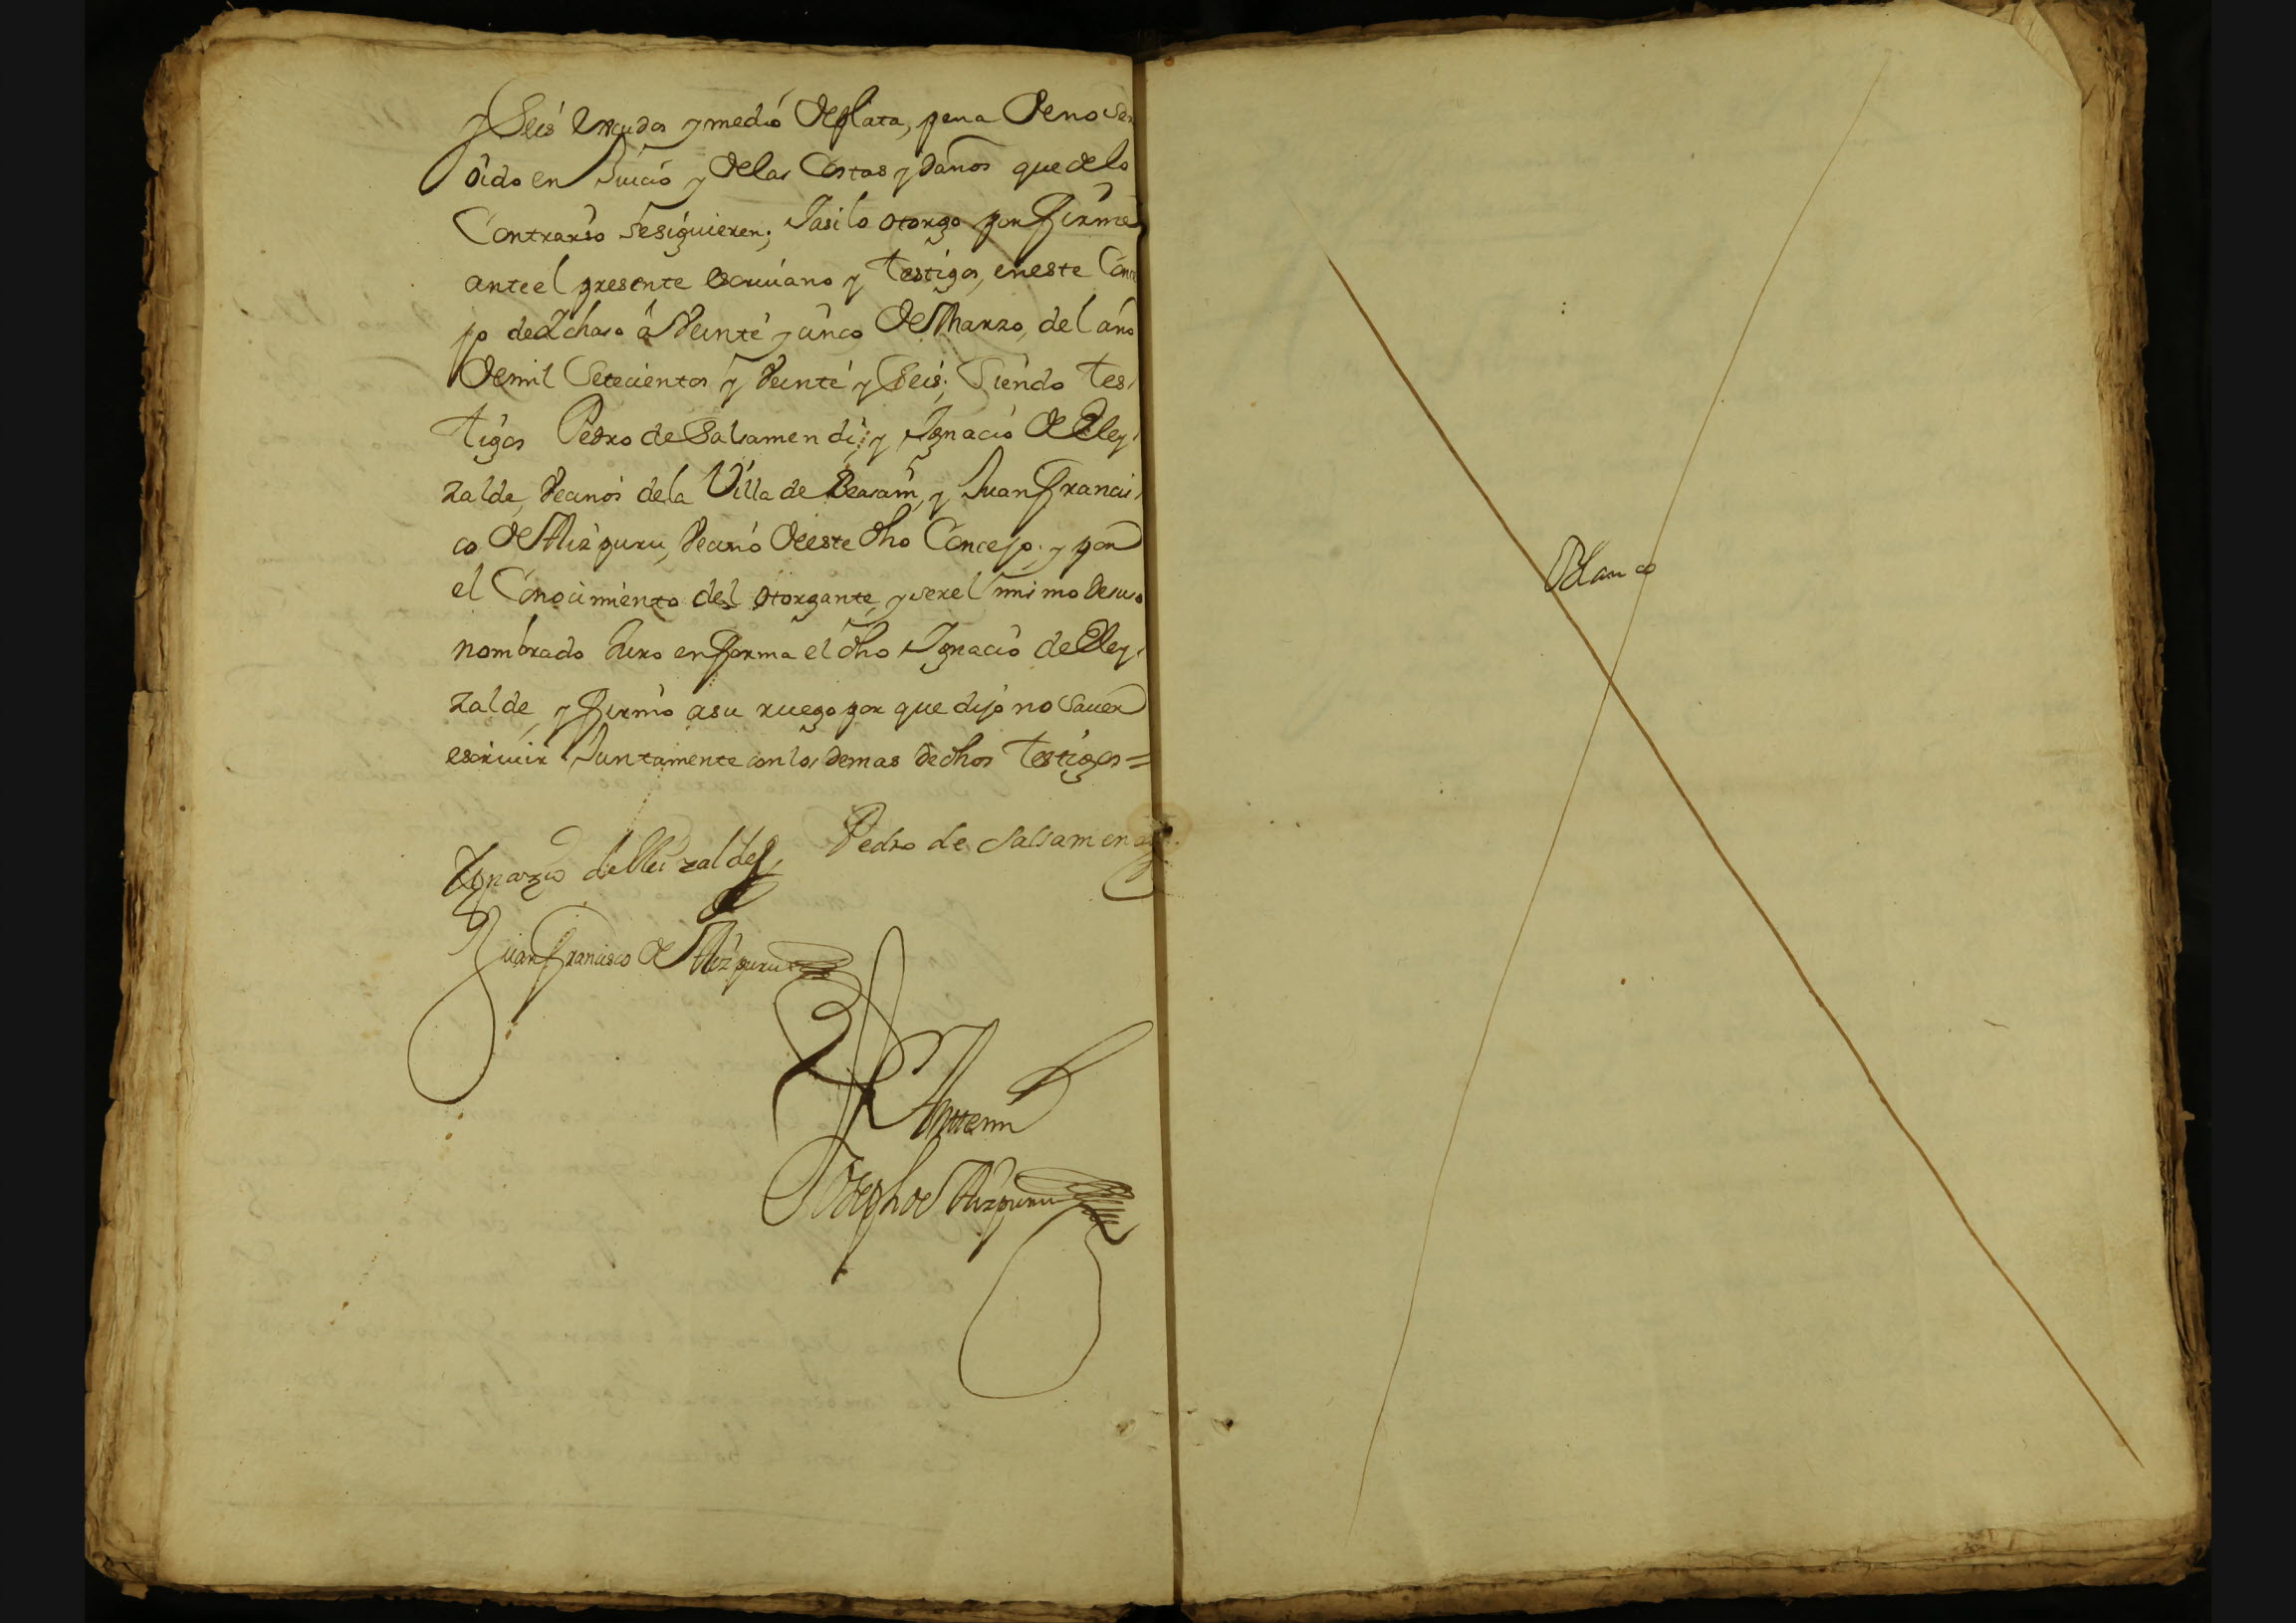 y Seis escudos y medio de plata, pena de no ser
oido en Juicio y de las Costas y daños que de lo
Contrario se siguieren; Yasi lo otorgo por firme
ante el presente escriuano y testigos, en este Conce
jo de Ichaso à Veinte y cinco de Marzo, del año
de mil Setecientos y Veinte y Seis; Siendo tes,
tigos Pedro de Salsamendi; y Ignacio de Eley,
zalde, Vecinos de la Villa de Beasain, y Juan Francis,
co de Aizpuru, Vecino de este dho Concejo; y por
el Conocimiento del otorgante, y ser el mismo de suso
nombrado Juro en forma el dho Ignacio de Eley,
zalde, y firmò a su ruego por que dijo no sauer
escriuir Juntamente con los demas de dhos testigos =
Ignazio de Eleizalde
Pedro de Salsamendi
Juan Francisco de Aizpuru
Antemi
Joseph de Aizpuru
Blanco